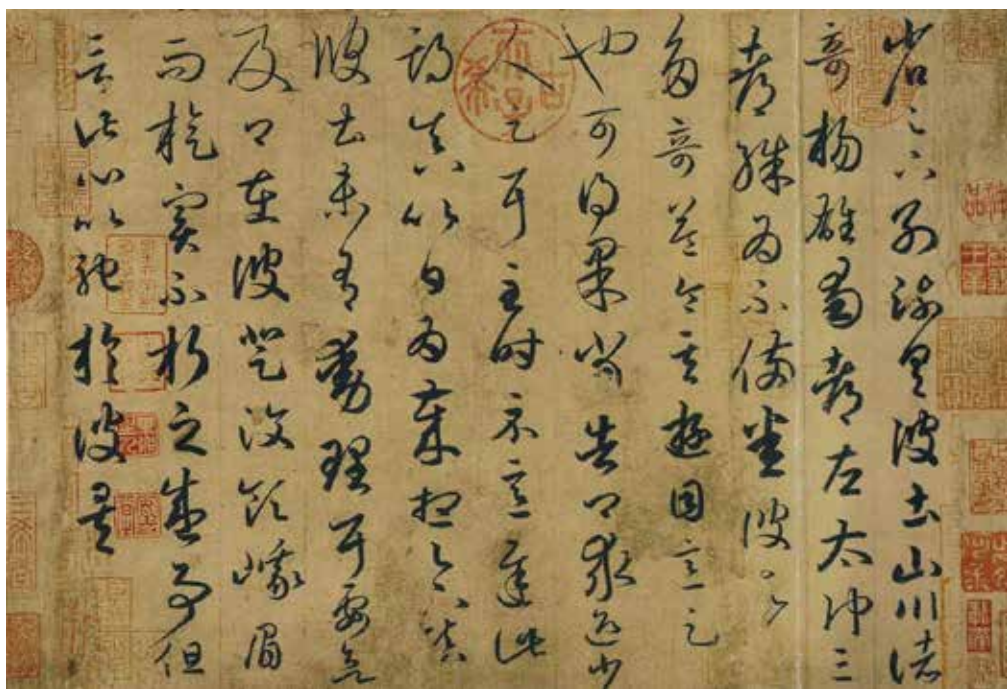 省足下別疏具彼土山川諸
奇楊雄蜀都左太沖三
都殊為不備悉彼故為
多奇益令其遊目意足
也可得果當告卿求迎少
人足耳至時示意遲此
期真以日為歲想足下鎮
彼土未有動理耳要欲
及卿在彼登汶領峨眉
而旋實不朽之盛事但
言此心以馳於彼矣